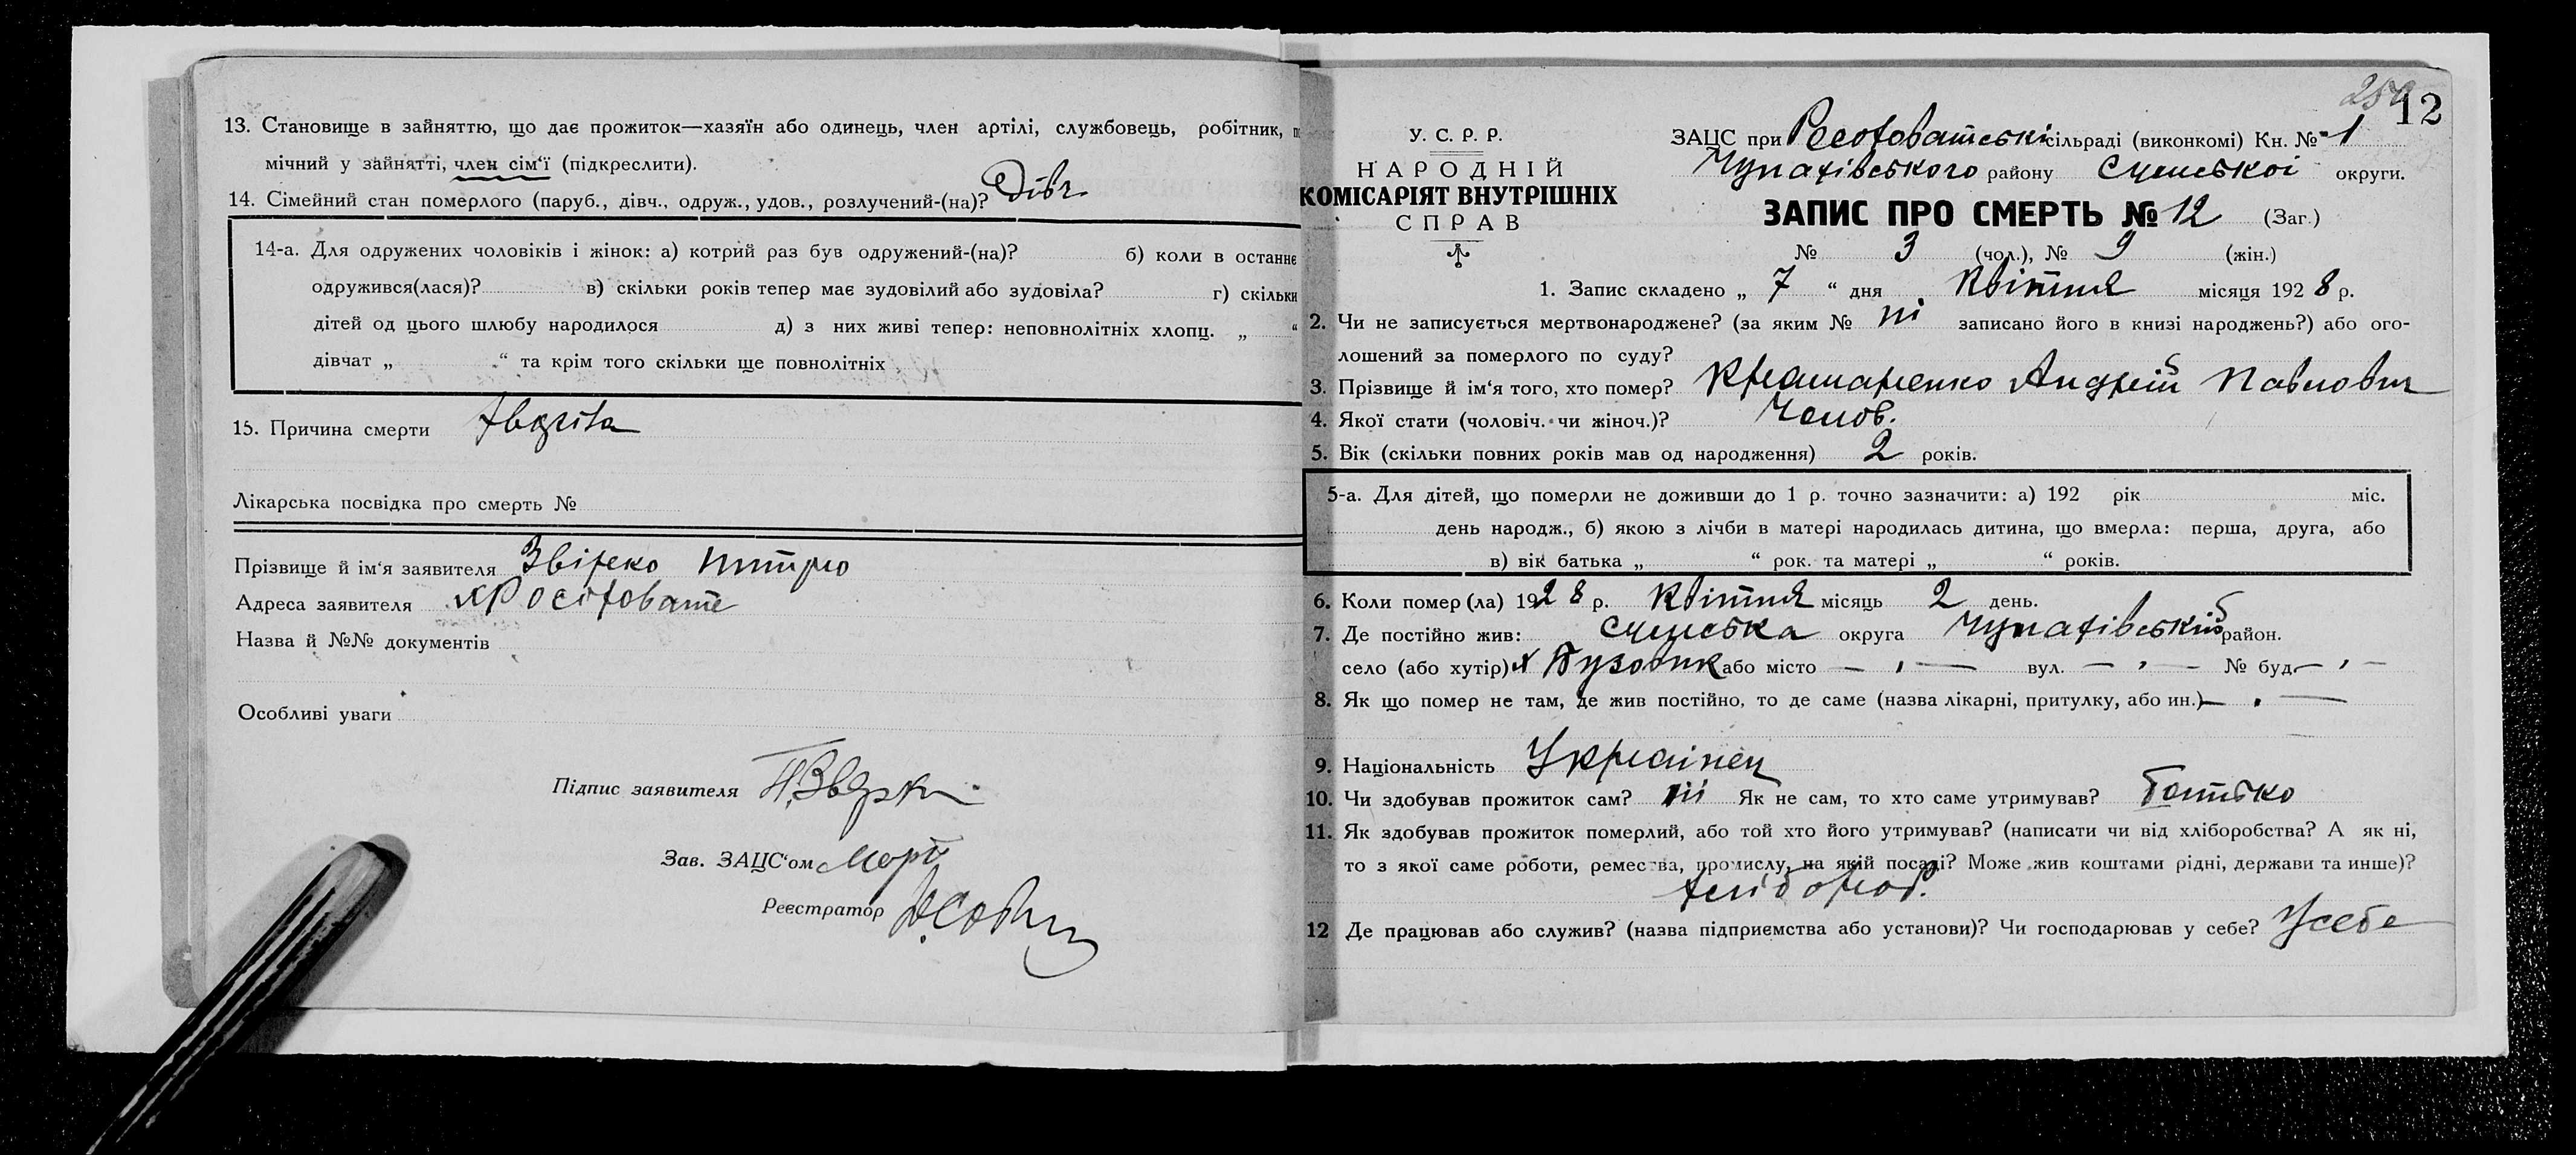 13. Становище в зайняттю, що дає прожиток—хазяїн або одинець, член артілі, службовець, робітник,
мічний у зайнятті, член сім‘ї (підкреслити).
14. Сімейний стан померлого (паруб., дівч., одруж., удов., розлучений-(на)? Дівч
14-а. Для одружених чоловіків і жінок: а) котрий раз був одружений-(на)? б) коли в останнє
одружився(лася)? в) скільки років тепер має зудовілий або зудовіла? г) скільки
дітей од цього шлюбу народилося д) з них живі тепер: неповнолітніх хлопц. „ “
дівчат „ “ та крім того скільки ще повнолітніх
15. Причина смерти
Лікарська посвідка про смерть №
Прізвище й ім‘я заявителя
Адреса заявителя
Назва й №№ документів
Особливі уваги
Підпис заявителя
Зав. ЗАЦС‘ом
Реєстратор
12
У. С. Р. Р.
НАРОДНІЙ
КОМІСАРІЯТ ВНУТРІШНІХ
СПРАВ
ЗАЦС при сільраді (виконкомі) Кн. № 1
Чупахівського району Сумської округи.
ЗАПИС ПРО СМЕРТЬ № 12 (Заг.)
№ 3 (чол.), № 9 (жін.)
1. Запис складено „ 7 “ дня Квітня місяця 192 8 р.
2. Чи не записується мертвонароджене? (за яким № ні записано його в книзі народжень?) або ого-
лошений за померлого по суду?
3. Прізвище й ім‘я того, хто помер? Крамаренко Андрій Павлович
4. Якої стати (чоловіч. чи жіноч.)? Челов.
5. Вік (скільки повних років мав од народження) 2 років.
5-а. Для дітей, що померли не доживши до 1 р. точно зазначити: а) 192 рік міс.
день народж., б) якою з лічби в матері народилась дитина, що вмерла: перша, друга, або
в) вік батька „ “ рок. та матері „ “ років.
6. Коли помер(ла) 1928 р. Квітня місяць 2 день.
7. Де постійно жив: Сумська округа Чупахівський район.
село (або хутір) або місто — вул. — № буд. —
8. Як що помер не там, де жив постійно, то де саме (назва лікарні, притулку, або ин.) —
9. Національність Украінец
10. Чи здобував прожиток сам? ні Як не сам, то хто саме утримував? Батько
11. Як здобував прожиток померлий, або той хто його утримував? (написати чи від хліборобства? А як ні,
то з якої саме роботи, ремества, промислу, на якій посаді? Може жив коштами рідні, держави та инше)?
хлібороб.
12 Де працював або служив? (назва підприємства або установи)? Чи господарював у себе? Усебе